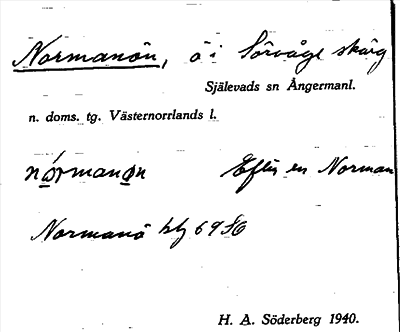 Normanön, ö i Sörvåge skärg
Själevads sn Ångermanl.
n. doms. tg. Västernorrlands l.
nórmanøn Efter en Norman
Normanö blj 69 SO
H. A. Söderberg 1940.